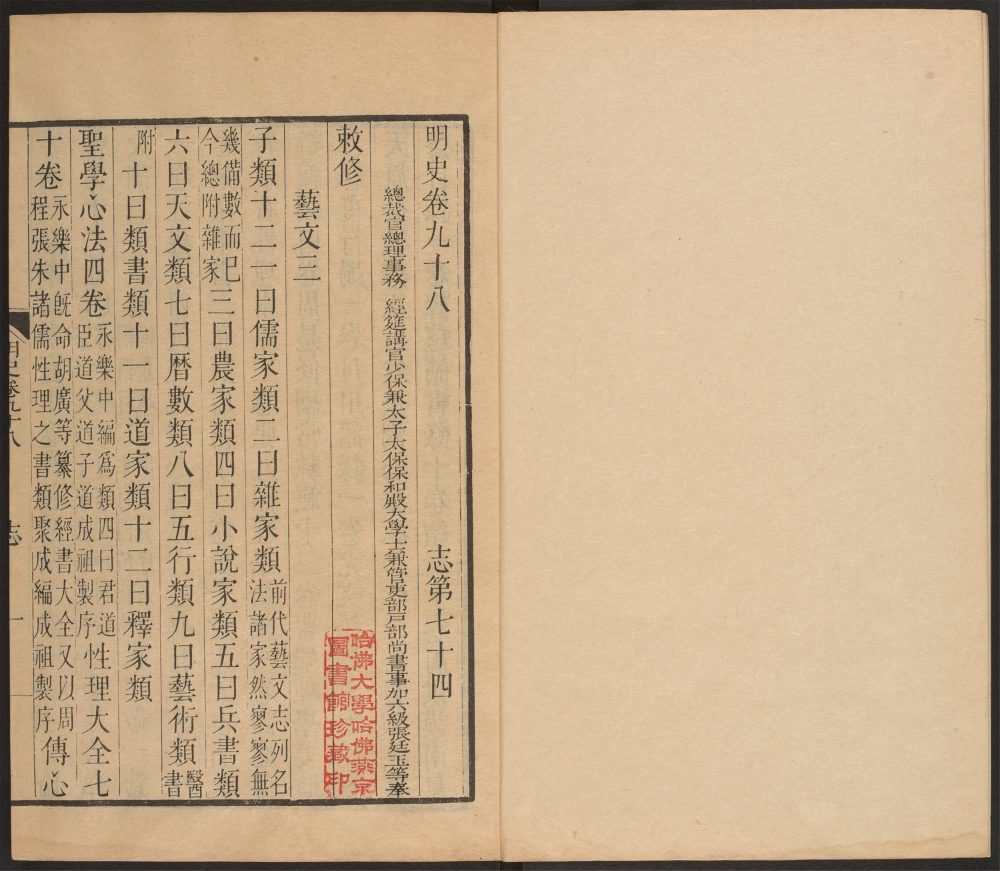 明史卷九十八　志第七十四
總裁官總理事務　經筵講官少保兼太子太保保和殿大學士兼管吏部戶部尚書事加六級張廷玉等奉
敕修
藝文三
子類十二一曰儒家類二曰雜家類前代藝文志列名法諸家然寥寥無
幾備數而已今總附雜家三曰農家類四曰小說家類五曰兵書類
六曰天文類七曰曆數類八曰五行類九曰藝術類醫書
附十曰類書類十一曰道家類十二曰釋家類
聖學心法四卷永樂中編為類四曰君道臣道父道子道成祖製序性理大全七
十卷永樂中既命胡廣等纂修經書大全又以周程張朱諸儒性理之書類聚成編成祖製序傳心
明史卷九十八　志　一
哈佛大學哈佛燕京
圖書館珍藏印